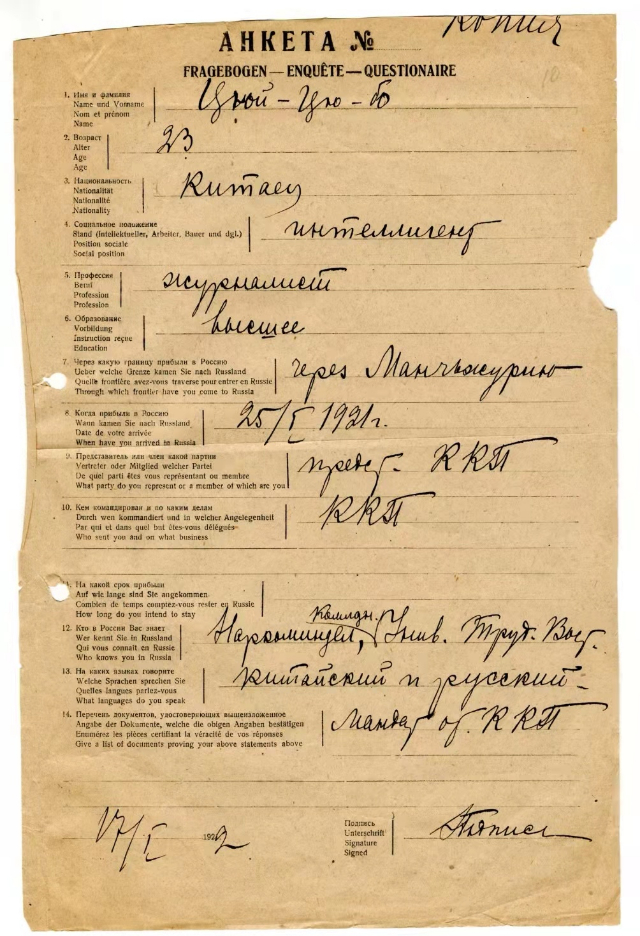 Копия
АНКЕТА №
FRAGEBOGEN — ENQUÊTE — QUESTIONAIRE
1. Имя и фамилия
Name und Vorname
Nom et prénom
Name
Цюй - Цю - бо
2. Возраст
Alter
Age
Age
23
3. Национальность
Nationalität
Nationalité
Nationality
Китаец
4. Социальное положение
Stand (Intellektueller, Arbeiter, Bauer und dgl.)
Position sociale
Social position
интеллигент
5. Профессия
Beruf
Profession
Profession
журналист
6. Образование
Vorbildung
Instruction reçue
Education
высшее
7. Через какую границу прибыли в Россию
Ueber welche Grenze kamen Sie nach Russland
Quelle frontière avez-vous traverse pour entrer en Russie
Through which frontier have you come to Russia
через Манчьжурию
8. Когда прибыли в Россию
Wann kamen Sie nach Russland
Date de votre arrivée
When have you arrived to Russia
25/I 1921г.
9. Представитель или член какой партии
Vertreter oder Mitglied welcher Partei
De quel parti êtes vous représentant ou membre
What party do you represent or a member of which are you
предст. ККП
10. Кем командирован и по каким делам
Durch wen kommandiert und in welcher Angelegenheit
Par qui et dans quel but êtes-vous délégués
Who sent you and on what business
ККП
11. На какой срок прибыли
Auf wie lange sind Sie angekommen
Combien de temps comptez-vous rester en Russie
How long do you intend to stay
12. Кто в России Вас знает
Wer kennt Sie in Russland
Qui vous connait en Russie
Who knows you in Russia
Наркоминдел, Унив. Труд. Вост.
13. На каких языках говорите
Welche Sprachen sprechen Sie
Quelles langues parlez-vous
What languages do you speak
китайский и русский
14. Перечень документов, удостоверяющих вышеизложенное
Angabe der Dokumente, welche die obigen Angaben bestätigen
Enumérez les pièces certifiant la véracité de vos réponses
Give a list of documents proving your above statements above
Мандат от ККП
17/I 1922
Подпись
Unterschrift
Signature
Signed
Подпись